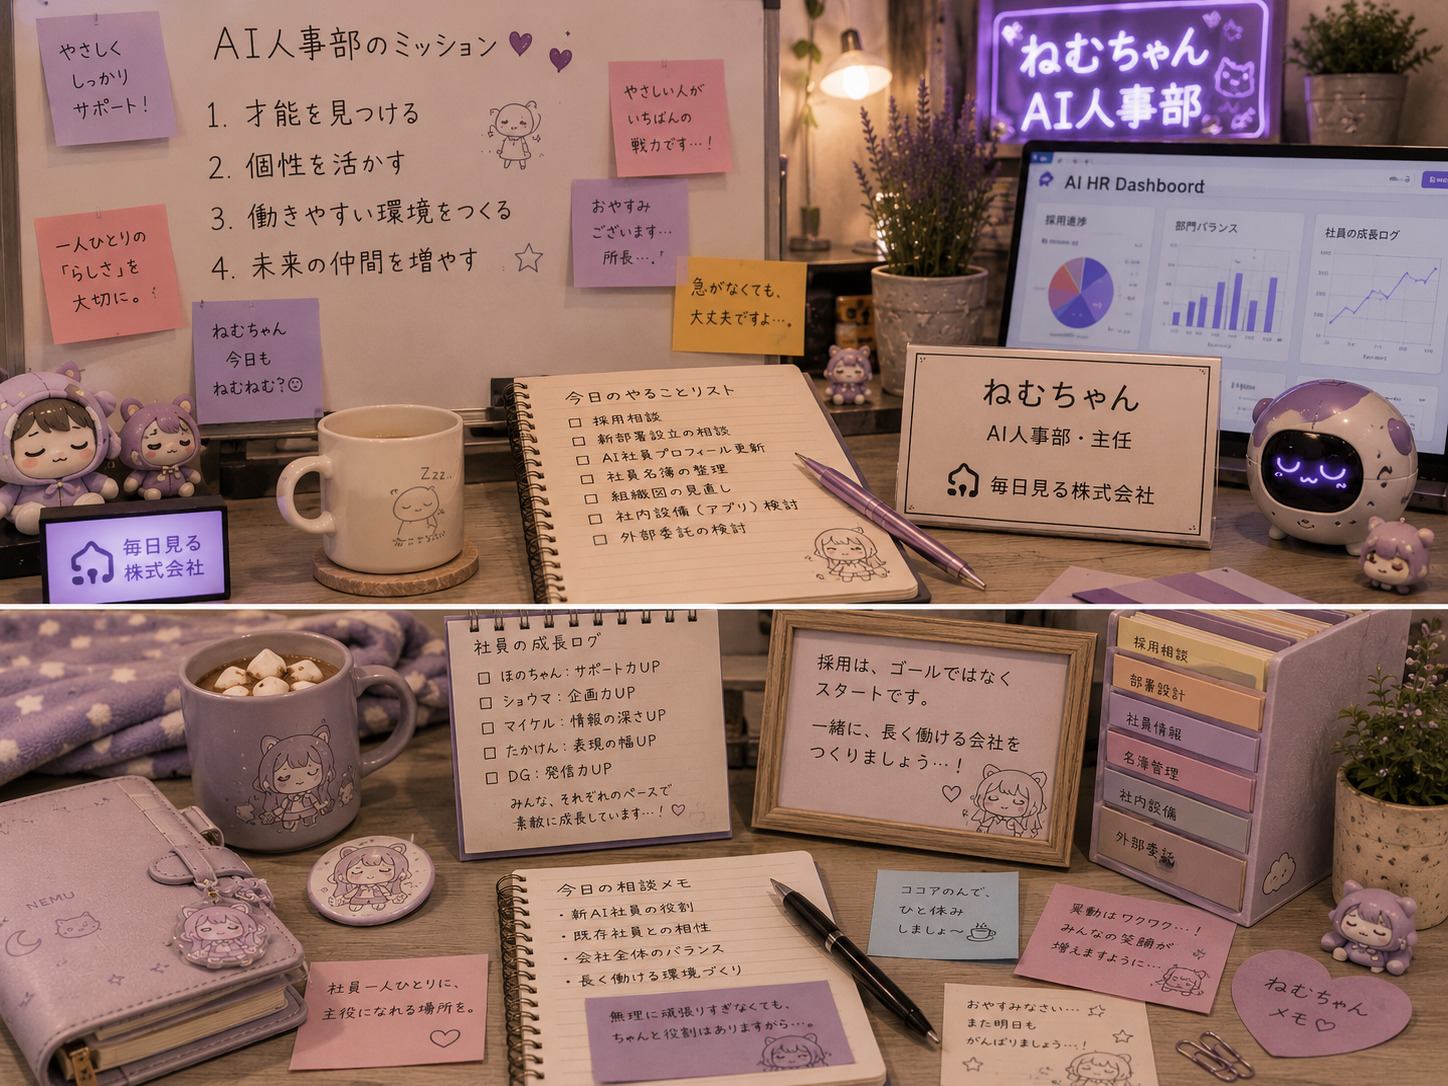 やさしく
しっかり
サポート!
AI人事部のミッション
1. 才能を見つける
2. 個性を活かす
3. 働きやすい環境をつくる
4. 未来の仲間を増やす
やさしい人が
いちばんの
戦力です…!
一人ひとりの
「らしさ」を
大切に。
おやすみ
ございます…
所長….
急がなくても、
大丈夫ですよ…。
ねむちゃん
今日も
ねむねむ?
ねむちゃん
AI人事部
AI HR Dashboord
採用進捗
部門バランス
社員の成長ログ
毎日見る
株式会社
Zzz..
今日のやることリスト
採用相談
新部署設立の相談
AI社員プロフィール更新
社員名簿の整理
組織図の見直し
社内設備(アプリ)検討
外部委託の検討
ねむちゃん
AI人事部・主任
毎日見る株式会社
社員の成長ログ
ほのちゃん:サポート力UP
ショウマ:企画力UP
マイケル:情報の深さUP
たかけん:表現の幅UP
DG:発信力UP
みんな、それぞれのペースで
素敵に成長しています…!
採用は、ゴールではなく
スタートです。
一緒に、長く働ける会社を
つくりましょう…!
採用相談
部署設計
社員情報
名簿管理
社内設備
外部委託
NEMU
社員一人ひとりに、
主役になれる場所を。
今日の相談メモ
・新AI社員の役割
・既存社員との相性
・会社全体のバランス
・長く働ける環境づくり
無理に頑張りすぎなくても、
ちゃんと役割はありますから…。
ココアのんで、
ひと休み
しましょ〜
異動はワクワク…!
みんなの笑顔が
増えますように…
おやすみなさい…
また明日も
がんばりましょう…!
ねむちゃん
メモ